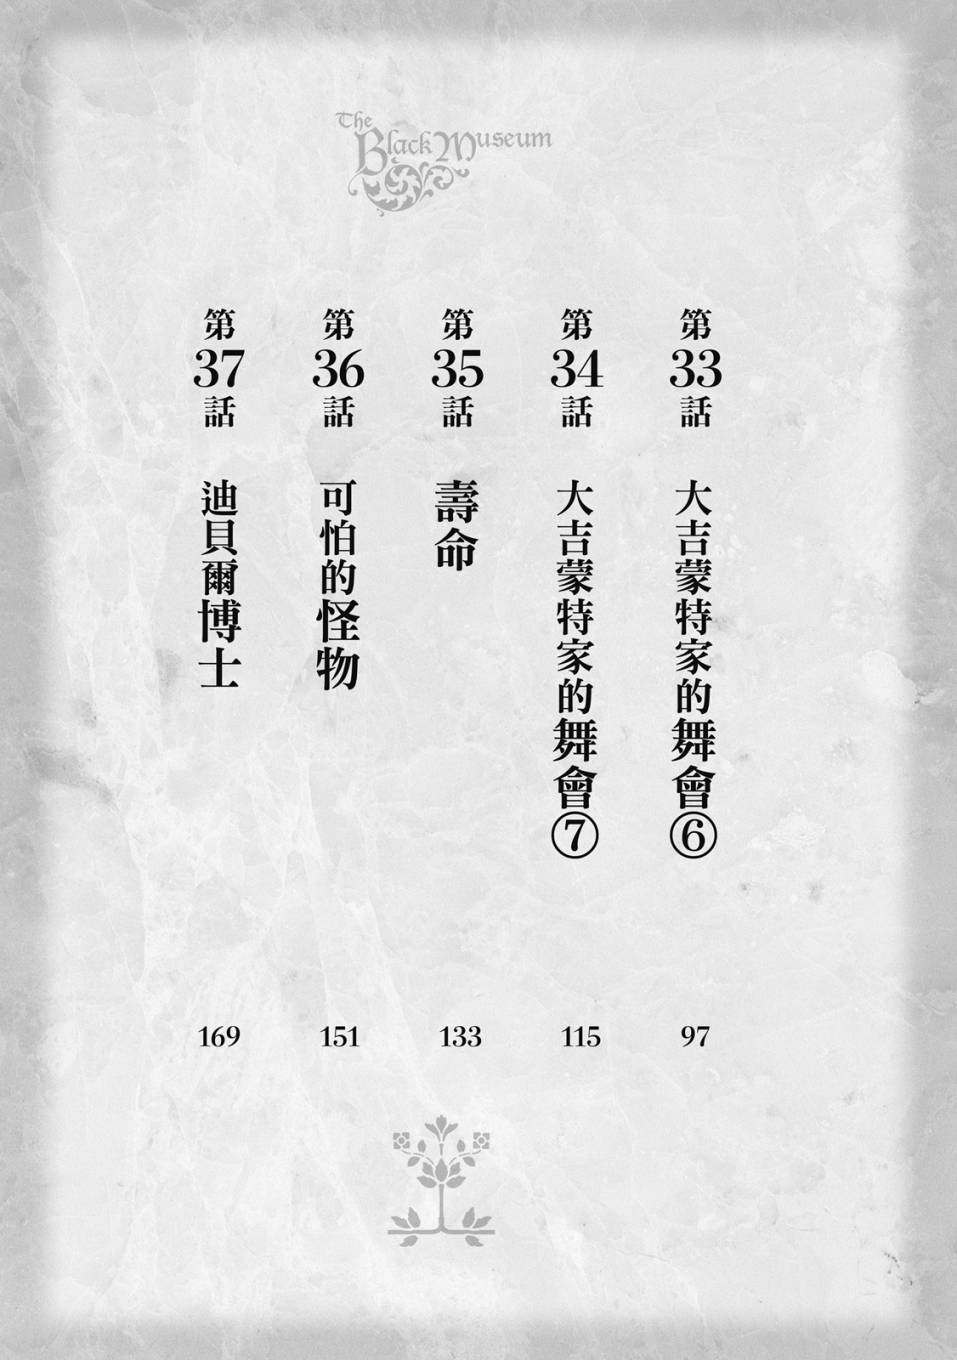 The
Black Museum
第33話 大吉蒙特家的舞會⑥ 97
第34話 大吉蒙特家的舞會⑦ 115
第35話 壽命 133
第36話 可怕的怪物 151
第37話 迪貝爾博士 169